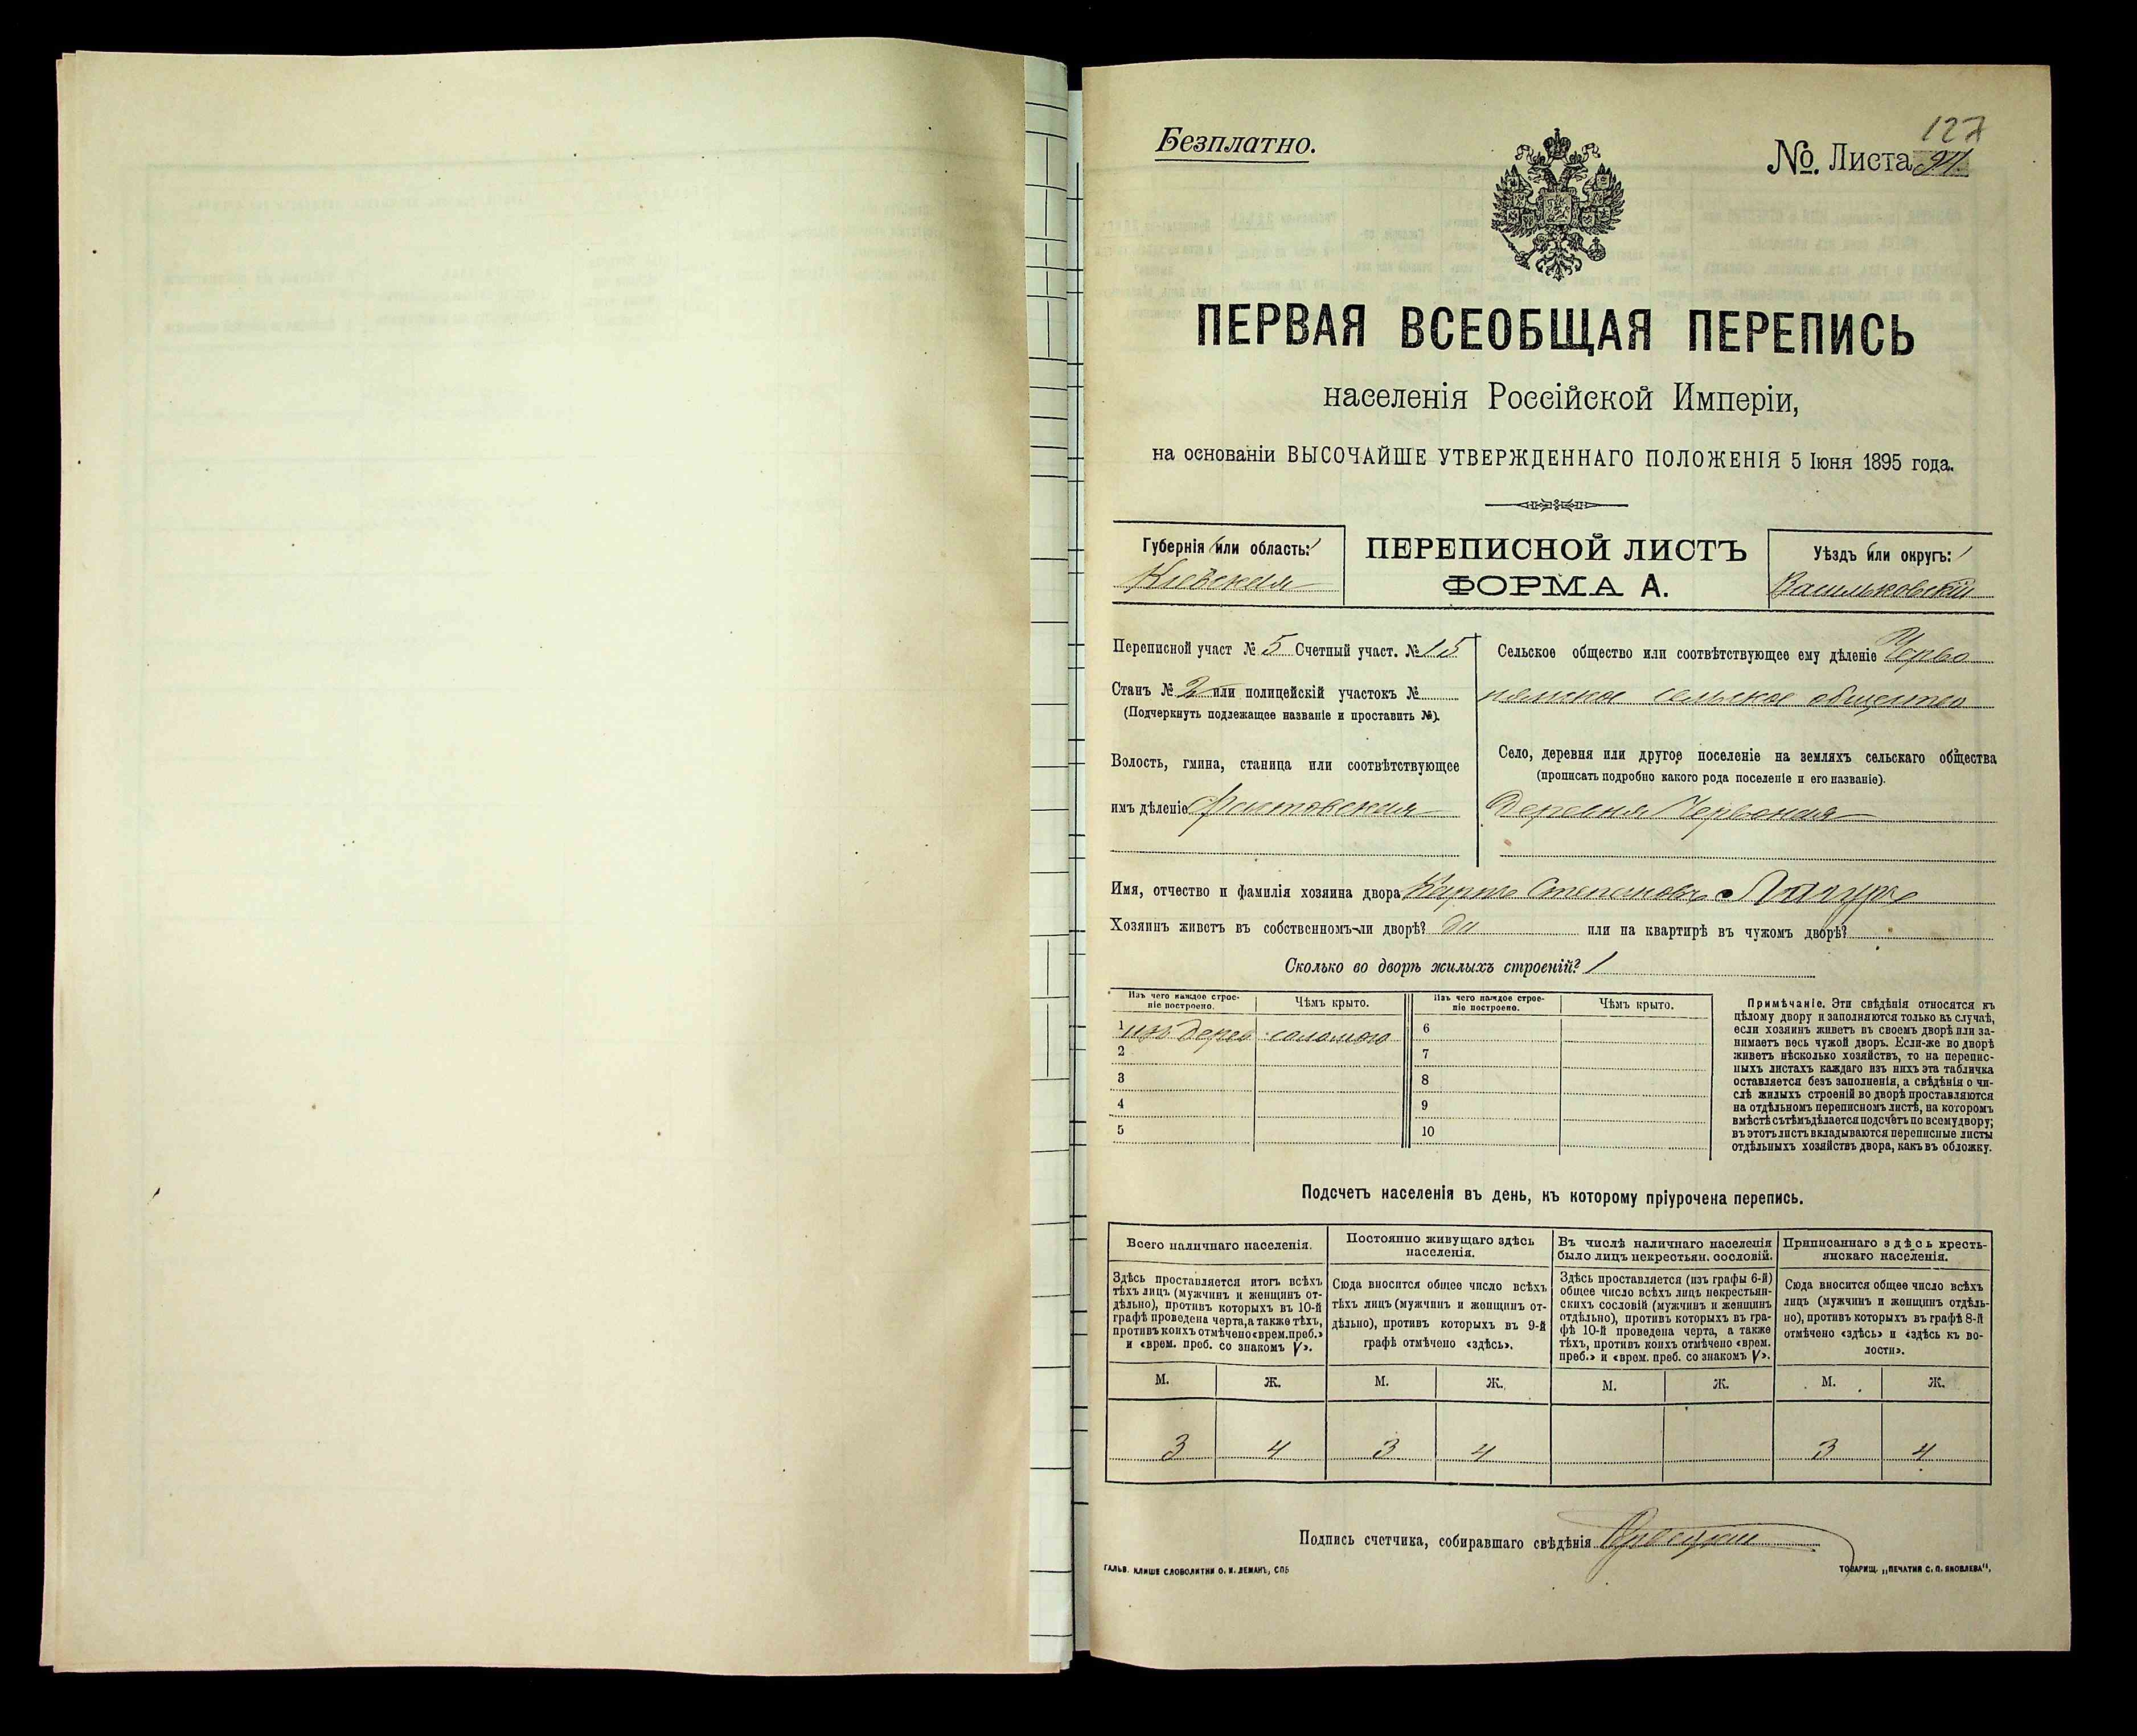 Безплатно.
127
№. Листа 91.
ПЕРВАЯ ВСЕОБЩАЯ ПЕРЕПИСЬ
населенія Россійской Имперіи,
на основаніи ВЫСОЧАЙШЕ УТВЕРЖДЕННАГО ПОЛОЖЕНІЯ 5 Іюня 1895 года.
Губернія или область:
Кіевская
ПЕРЕПИСНОЙ ЛИСТЪ
ФОРМА А.
Уѣздъ или округъ:
Васильковскій
Переписной участ № 5 Счетный участ. № 15
Станъ № 2 или полицейскій участокъ №
(Подчеркнуть подлежащее названіе и проставить №).
Волость, гмина, станица или соотвѣтствующее
имъ дѣленіе
Сельское общество или соотвѣтствующее ему дѣленіе Черво
нянское сельское общество
Село, деревня или другое поселеніе на земляхъ сельскаго общества
(прописать подробно какого рода поселеніе и его названіе).
Деревня Червоная
Имя, отчество и фамилія хозяина двора Карпо Степановъ
Хозяинъ живетъ въ собственномъ-ли дворѣ? да или на квартирѣ въ чужомъ дворѣ?
Сколько во дворѣ жилыхъ строеній? 1
Изъ чего каждое строе-
ніе построено.
Чѣмъ крыто.
Изъ чего каждое строе-
ніе построено.
Чѣмъ крыто.
1 изъ дерев соломою 6
2 7
3 8
4 9
5 10
Примѣчаніе. Эти свѣдѣнія относятся къ
цѣлому двору и заполняются только въ случаѣ,
если хозяинъ живетъ въ своемъ дворѣ или за-
нимаетъ весь чужой дворъ. Если-же во дворѣ
живетъ нѣсколько хозяйствъ, то на перепис-
ныхъ листахъ каждаго изъ нихъ эта табличка
оставляется безъ заполненія, а свѣдѣнія о чи-
слѣ жилыхъ строеній во дворѣ проставляются
на отдѣльномъ переписномъ листѣ, на которомъ
вмѣстѣ съ тѣмъ дѣлается подсчетъ по всему двору;
въ этотъ листъ вкладываются переписные листы
отдѣльныхъ хозяйствъ двора, какъ въ обложку.
Подсчетъ населенія въ день, къ которому пріурочена перепись.
Всего наличнаго населенія.
Здѣсь проставляется итогъ всѣхъ
тѣхъ лицъ (мужчинъ и женщинъ от-
дѣльно), противъ которыхъ въ 10-й
графѣ проведена черта, а также тѣхъ,
противъ коихъ отмѣчено «врем. преб.»
и «врем. преб. со знакомъ V».
Постоянно живущаго здѣсь
населенія.
Сюда вносится общее число всѣхъ
тѣхъ лицъ (мужчинъ и женщинъ от-
дѣльно), противъ которыхъ въ 9-й
графѣ отмѣчено «здѣсь».
Въ числѣ наличнаго населенія
было лицъ некрестьян. сословій.
Здѣсь проставляется (изъ графы 6-й)
общее число всѣхъ лицъ некрестьян-
скихъ сословій (мужчинъ и женщинъ
отдѣльно), противъ которыхъ въ гра-
фѣ 10-й проведена черта, а также
тѣхъ, противъ коихъ отмѣчено «врем.
преб.» и «врем. преб. со знакомъ V».
Приписаннаго здѣсь кресть-
янскаго населенія.
Сюда вносится общее число всѣхъ
лицъ (мужчинъ и женщинъ отдѣль-
но), противъ которыхъ въ графѣ 8-й
отмѣчено «здѣсь» и «здѣсь къ во-
лости».
М. Ж. М. Ж. М. Ж. М. Ж.
3 4 3 4 3 4
Подпись счетчика, собиравшаго свѣдѣнія
ГАЛЬВ. КЛИШЕ СЛОВОЛИТНИ О. И. ЛЕМАНЪ, СПБ
ТОВАРИЩ. „ПЕЧАТНЯ С. П. ЯКОВЛЕВА",